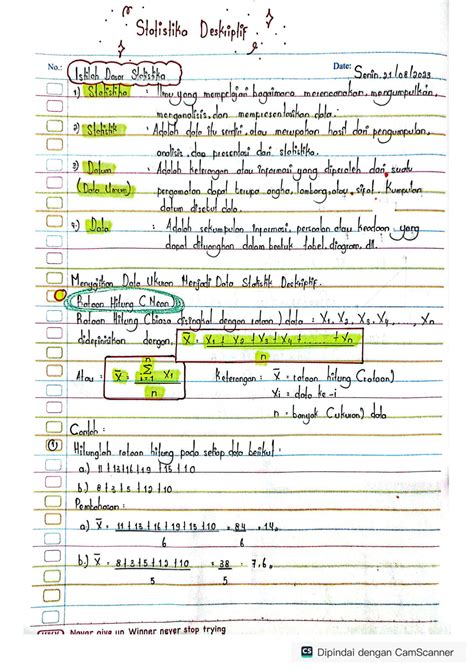 Statistika Deskriptif
No.:
Date: Senin, 21/08/2023
Istilah Dasar Statistika
1) Statistika : Ilmu yang mempelajari bagaimana merencanakan, mengumpulkan,
menganalisis, dan mempresentasikan data.
2) Statistik : Adalah data itu sendiri, atau merupakan hasil dari pengumpulan,
analisis, dan presentasi dari statistika.
3) Datum : Adalah keterangan atau informasi yang diperoleh dari suatu
(Data Umum) pengamatan dapat berupa angka, lambang, atau sifat. Kumpulan
datum disebut data.
Data : Adalah sekumpulan informasi, persoalan atau keadaan yang
dapat dituangkan dalam bentuk tabel, diagram, dll.
Menyajikan Data Ukuran Menjadi Data Statistik Deskriptif.
Rataan Hitung (Mean)
Rataan Hitung (biasa disingkat dengan rataan) data : X1, X2, X3, X4, ...., Xn
didefinisikan dengan, X̅ = X1 + X2 + X3 + X4 + ....... + Xn
n
Atau : X̅ = n Σ i=1 Xi Keterangan : X̅ = rataan hitung (rataan)
n Xi = data ke-i
n = banyak (ukuran) data
Contoh :
(1) Hitunglah rataan hitung pada setiap data berikut :
a.)
b.) 8+3+5+12+10
Pembahasan :
a) X̅ = 11+13+16+19+15+10 = 84 = 14.
6 6
b.) X̅ = 8+3+5+12+10 = 38 = 7.6.
5 5
Never give up Winner never stop trying
CS Dipindai dengan CamScanner